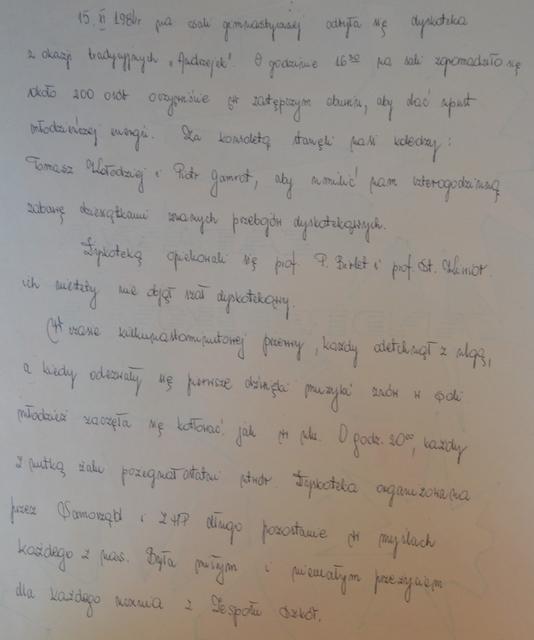 15. XI 1984r na sali gimnastycznej odbyła się dyskoteka
z okazji tradycyjnych "Andrzejek". O godzinie 16³⁰ na sali zgromadziło się
około 200 osób oczywiście w zastępczym obuwiu, aby dać upust
młodzieńczej energii. Za konsoletą stanęli nasi koledzy:
Tomasz Kołodziej i Piotr Gamrot, aby umilić nam czterogodzinną
zabawę dziesiątkami znanych przebojów dyskotekowych.
Dyskoteką opiekowali się prof. P. Burlet i prof. St. Klimor.
ich niestety nie objął szał dyskotekowy.
W czasie kilkunastominutowej przerwy, każdy odetchnął z ulgą,
a kiedy odezwały się pierwsze dźwięki muzyki znów w sali
młodzież zaczęła się kotłować jak w ulu. O godz. 20⁰⁰, każdy
z nutką żalu pożegnał ostatni utwór. Dyskoteka organizowana
przez Samorząd i ZHP długo pozostanie w myślach
każdego z nas. Była miłym i niemałym przeżyciem
dla każdego ucznia z Zespołu Szkół.